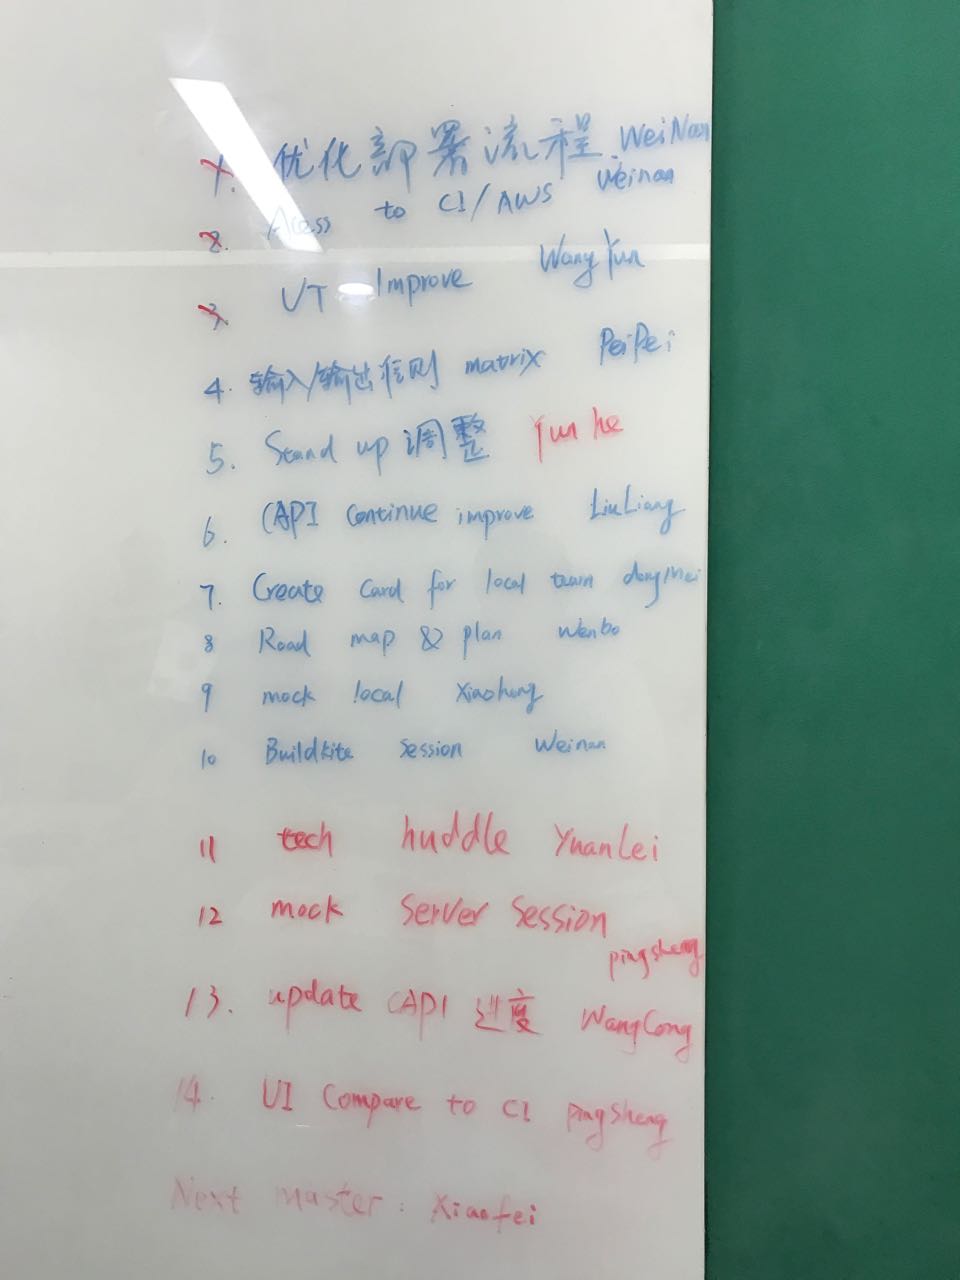 1. 优化部署流程. WeiNan
2. Acess to CI/AWS Weinan
3. UT Improve Wang Yun
4. 输入/输出准则 matrix PeiPei
5. Stand up 调整 Yun he
6. CAPI Continue improve LiuLiang
7. Create Card for local team dongmei
8 Road map & plan Wenbo
9 mock local Xiaohong
10 Buildkite Session Weinan
11 tech huddle YuanLei
12 mock Server Session
pingsheng
13. update CAPI 进度 WangCong
14. UI Compare to CI pingsheng
Next master: Xiaofei